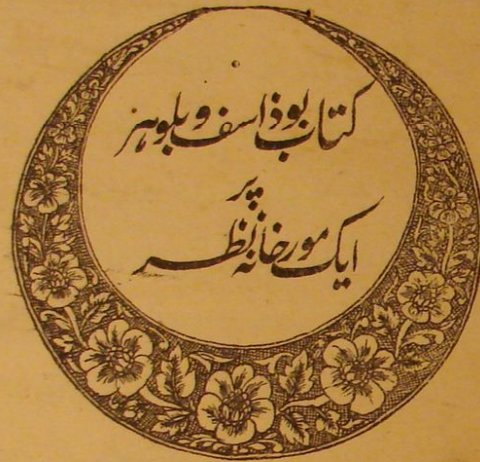 کتاب بوذاسف و بلوہر
پر
ایک مورخانہ نظر